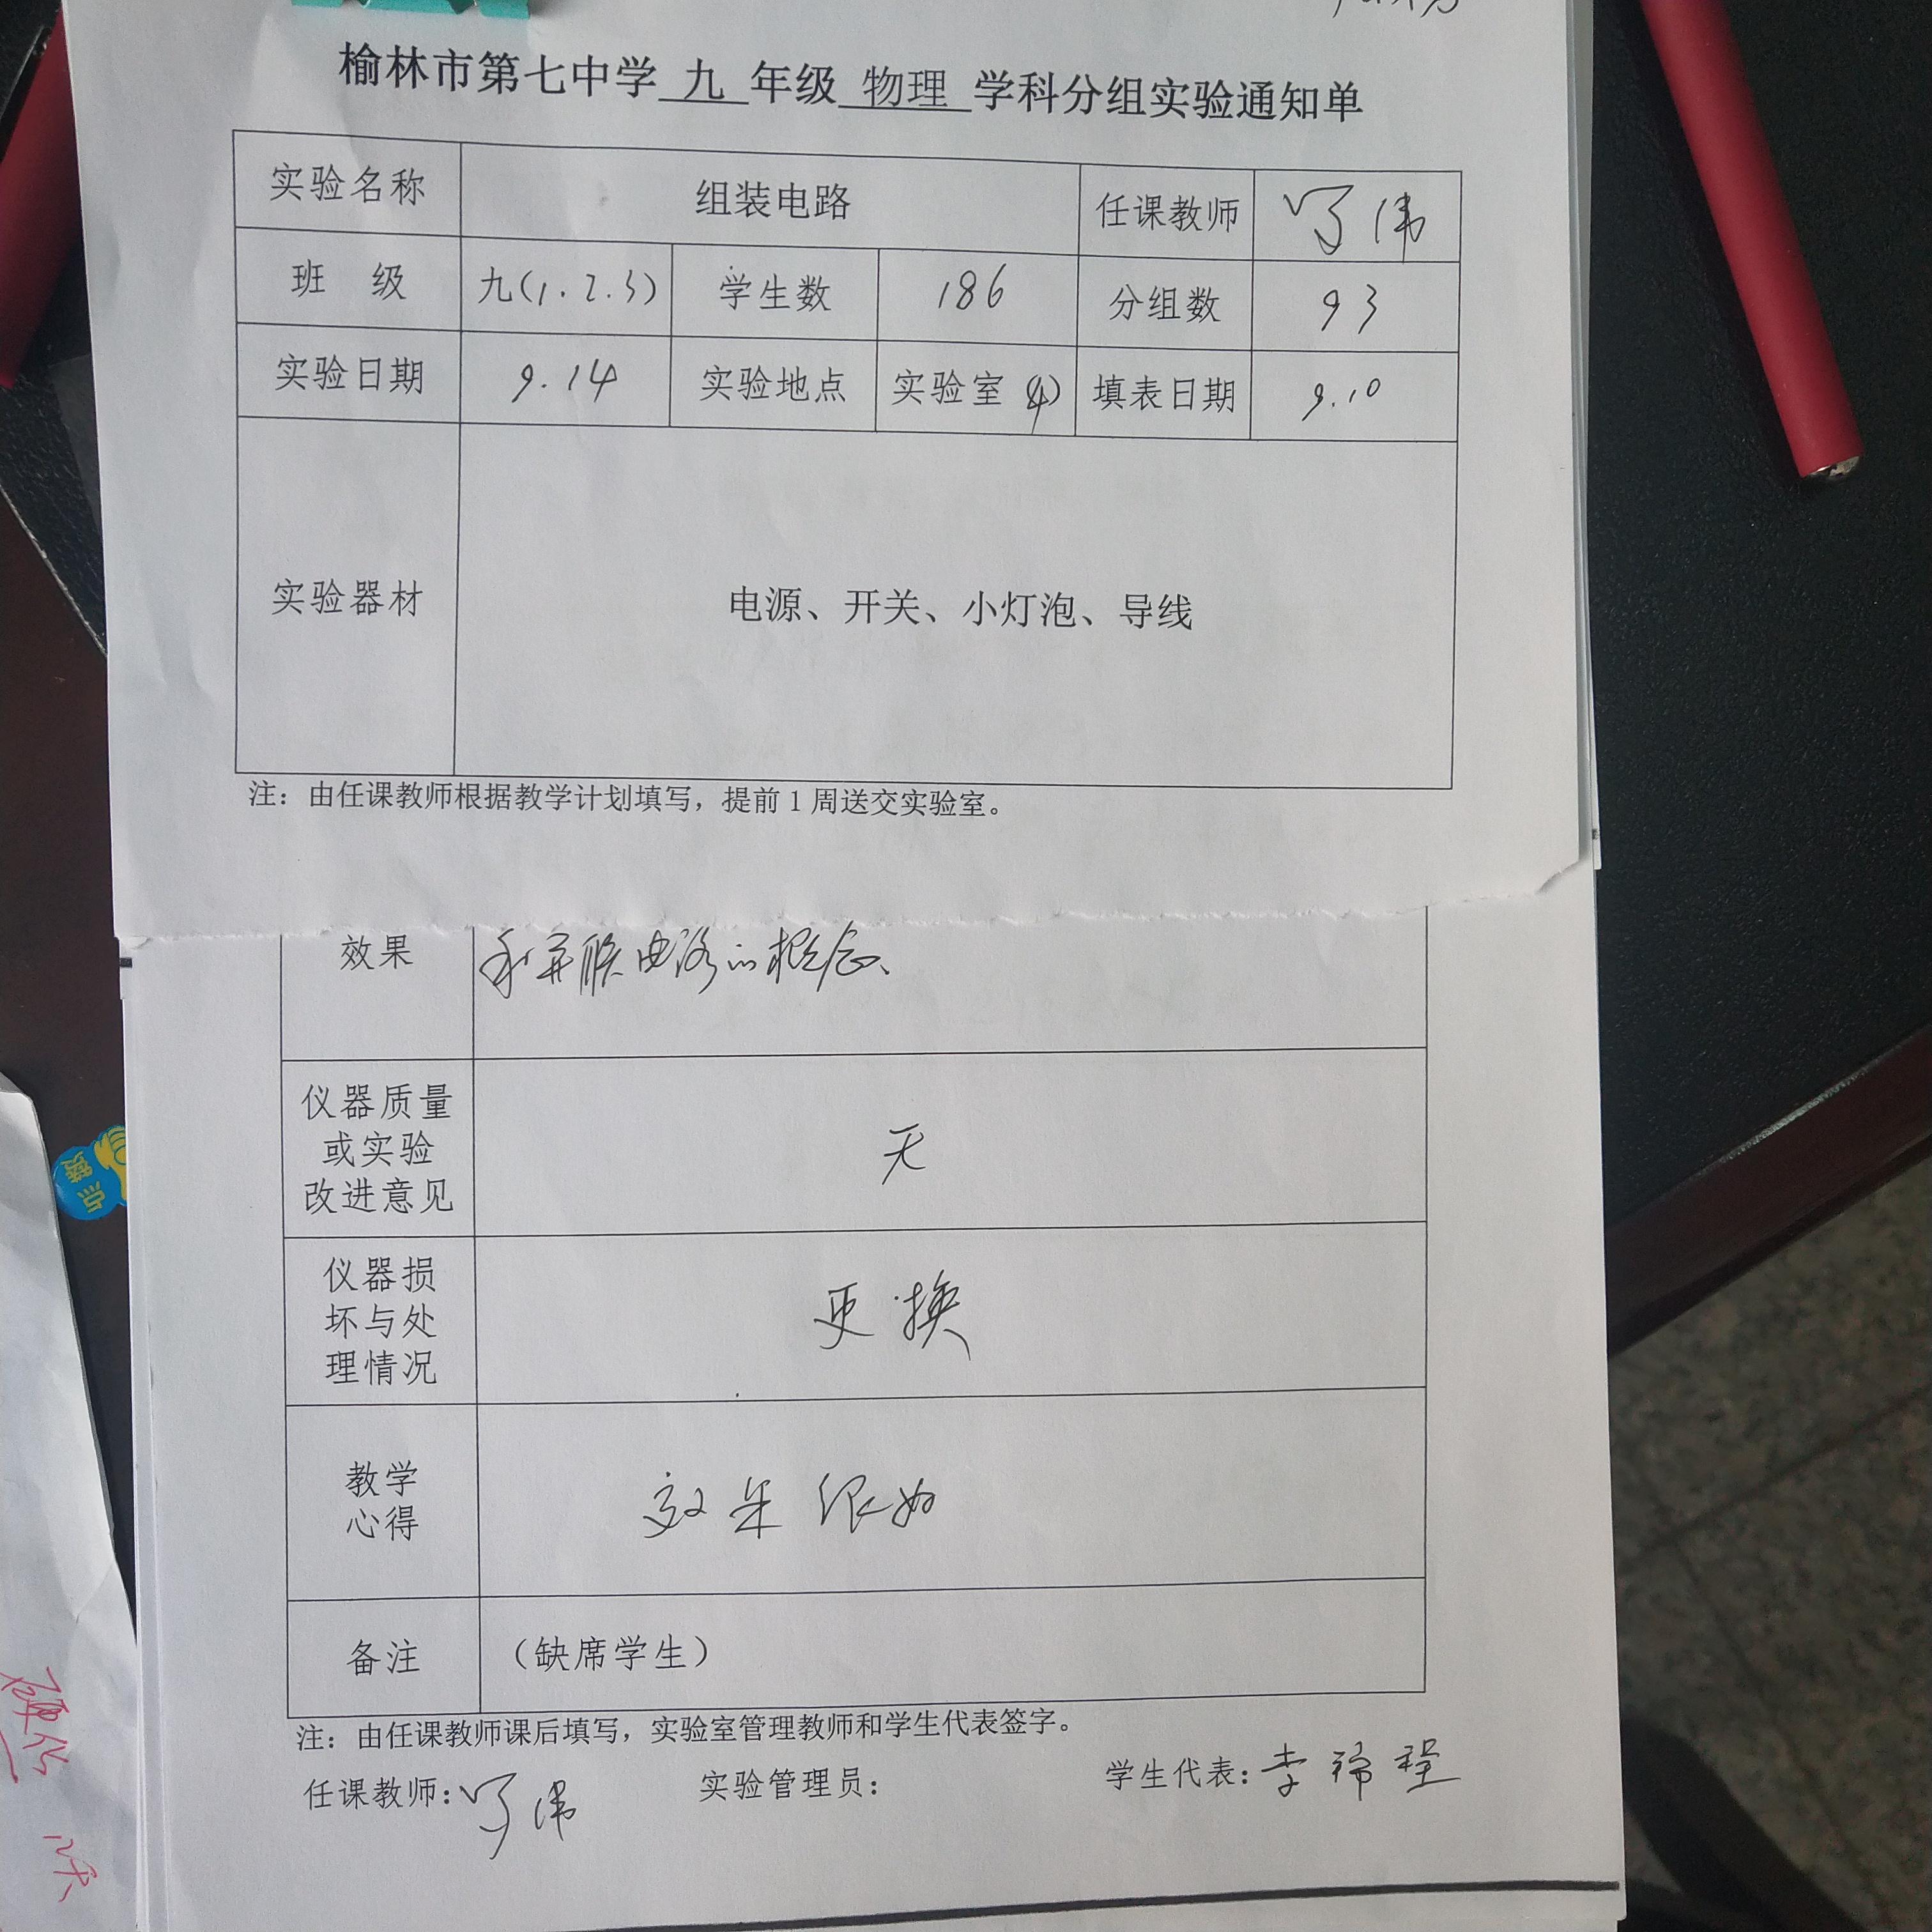 榆林市第七中学 九 年级 物理 学科分组实验通知单
实验名称 组装电路 任课教师 伟
班 级 九(1.2.3) 学生数 186 分组数 93
实验日期 9.14 实验地点 实验室(4) 填表日期 9.10
实验器材 电源、开关、小灯泡、导线
注：由任课教师根据教学计划填写，提前1周送交实验室。
效果 和并联电路的概念、
仪器质量
或实验
改进意见
无
仪器损
坏与处
理情况
更换
教学
心得
效果很好
备注 （缺席学生）
注：由任课教师课后填写，实验室管理教师和学生代表签字。
任课教师: 伟 实验管理员: 学生代表: 李 程
点赞